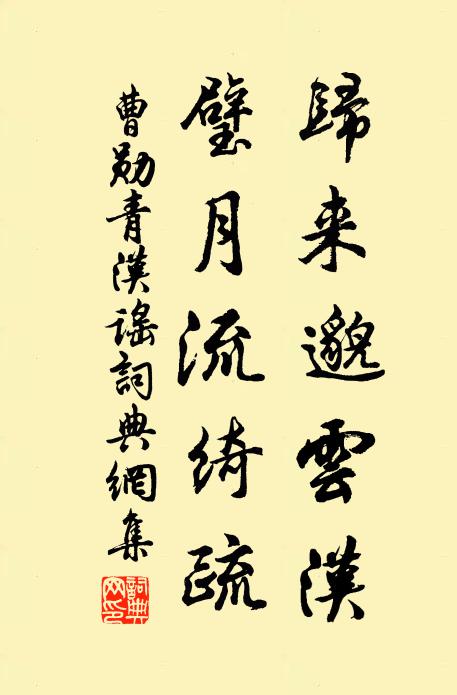 歸来邈雲漢
璧月流綺疏
曹勛青漢謠詞典網集
詞典
网印